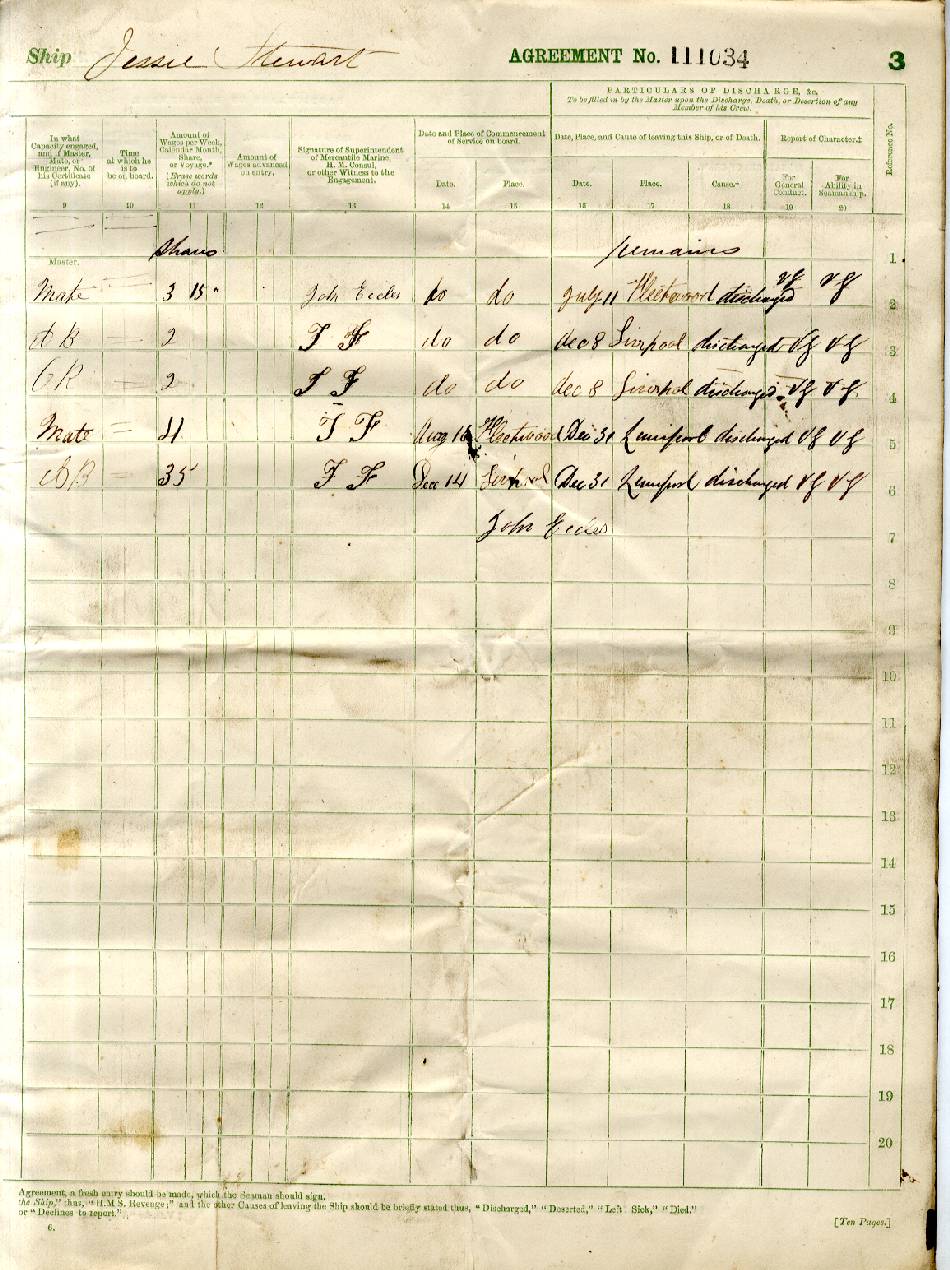 Ship Jessie Stewart AGREEMENT No. 111034 3
PARTICULARS OF DISCHARGE, &c.
To be filled in by the Master upon the Discharge, Death, or Desertion of any Member of his Crew.
In what Capacity engaged, and if Master, Mate, or Engineer, No. of his Certificate (if any).
Time at which he is to be on board.
Amount of Wages per Week, Calendar Month, Share, or Voyage.*
(Erase words which do not apply.)
Amount of Wages advanced on entry.
Signature of Superintendent of Mercantile Marine, H. M. Consul, or other Witness to the Engagement.
Date and Place of Commencement of Service on board.
Date, Place, and Cause of leaving this Ship, or of Death.
Report of Character.‡
Reference No.
Date. Place. Date. Place. Cause. For General Conduct. For Ability in Seamanship.
9 10 11 12 13 14 15 16 17 18 19 20
Master. Shares remains 1
Mate 3 15 " John Eccles do do July 11 Fleetwood discharged VG VG 2
AB 2 do do dec 8 Liverpool discharged VG VG 3
2 do do dec 8 Liverpool discharged VG VG 4
Mate Aug Fleetwood Dec 31 Liverpool discharged VG VG 5
AB 35 Dec 14 Liverpool Dec 31 Liverpool discharged VG VG 6
John Eccles 7
8
9
10
11
12
13
14
15
16
17
18
19
20
Agreement, a fresh entry should be made, which the Seaman should sign.
the Ship," thus, "H.M.S. Revenge;" and the other Causes of leaving the Ship should be briefly stated thus, "Discharged," "Deserted," "Left Sick," "Died."
or "Declines to report."
6. [Ten Pages.]